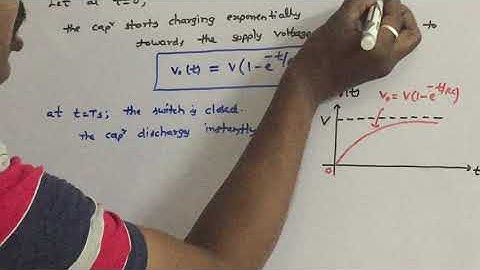 Let at t=0,
the capr starts charging exponentially
towards the supply voltage to
V₀(t) = V(1-e^-t/
at t=Ts; the switch is closed.
The capr dischargg instantly
(t)
V₀ = V(1-e^-t/RC)
V
0
t